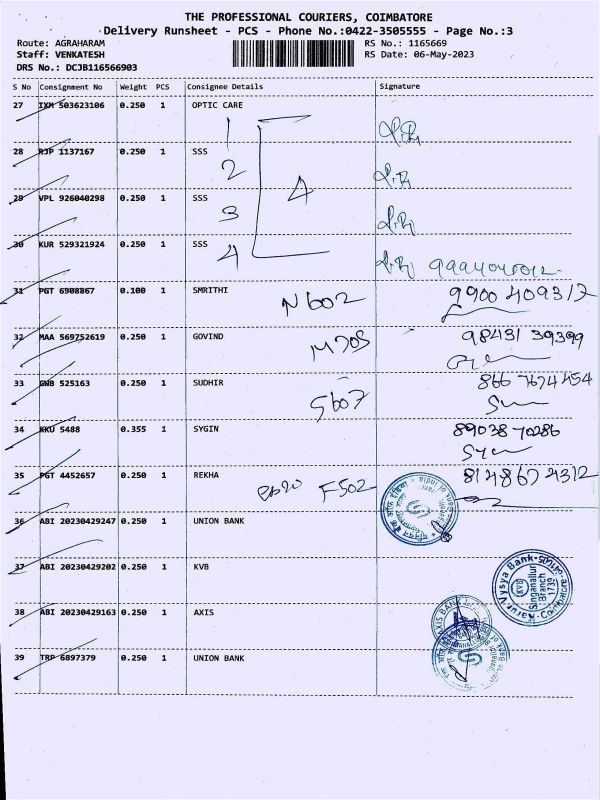 THE PROFESSIONAL COURIERS, COIMBATORE
Delivery Runsheet - PCS - Phone No.:0422-3505555 - Page No.:3
Route: AGRAHARAM RS No.: 1165669
Staff: VENKATESH RS Date: 06-May-2023
DRS No.: DCJB116566903
S No Consignment No Weight PCS Consignee Details Signature
27 IXM 503623106 0.250 1 OPTIC CARE
1
28 RJP 1137167 0.250 1 SSS
2 4
29 VPL 926040298 0.250 1 SSS
3
30 KUR 529321924 0.250 1 SSS
4
31 PGT 6908867 0.100 1 SMRITHI
N602 9900409317
32 MAA 569752619 0.250 1 GOVIND 98431 39399
M705
33 GWB 525163 0.250 1 SUDHIR 866 7674454
S607
34 KKU 5488 0.355 1 SYGIN 89038 70286
35 PGT 4452657 0.250 1 REKHA 8148674312
F502
36 ABI 20230429247 0.250 1 UNION BANK
37 ABI 20230429202 0.250 1 KVB
Karur Vysya Bank
KVB
Singanallur
Branch
1739
Coimbatore
38 ABI 20230429163 0.250 1 AXIS
AXIS BANK
39 TRP 6897379 0.250 1 UNION BANK